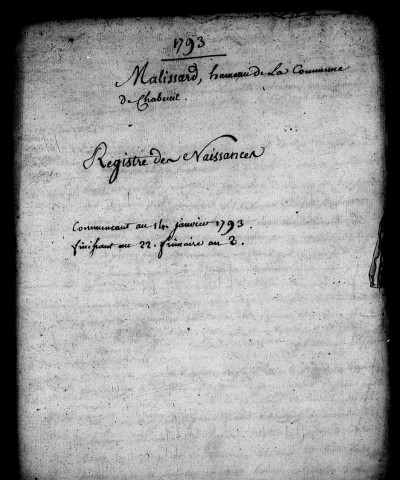 1793
Malissard, hameau de La Commune
de Chabeuil.
Registre des Naissances
Commencant au 14 janvier 1793.
finissant au 22. frimaire an 2.